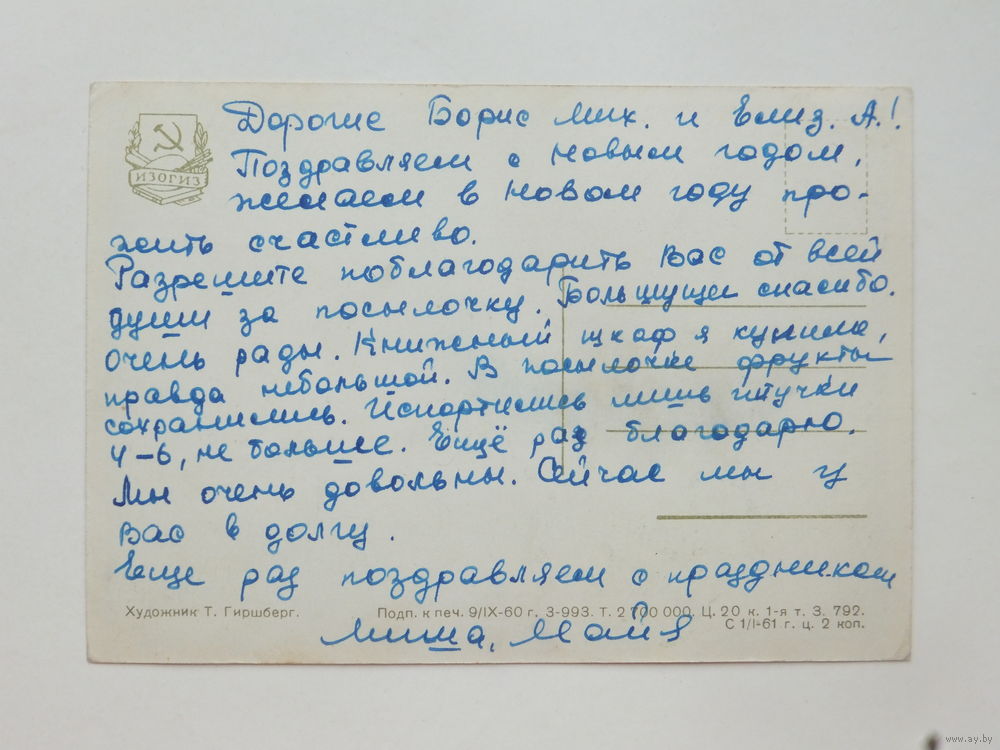 Дорогие Борис Мих. и Елиз. А.!
Поздравляем с Новым годом,
желаем в Новом году про-
жить счастливо.
Разрешите поблагодарить Вас от всей
души за посылочку. Большущее спасибо.
очень рады. Книжный шкаф я купила,
правда небольшой. В посылочке фрукты
сохранились. Испортились лишь штучки
4-6, не больше. Ещё раз благодарю.
Мы очень довольны. Сейчас мы у
Вас в долгу.
Еще раз поздравляем с праздником
Миша, Майя
ИЗОГИЗ
Художник Т. Гиршберг.
Подп. к печ. 9/IX-60 г. З-993. Т. 2 700 000. Ц. 20 к. 1-я т. З. 792.
С 1/I-61 г. ц. 2 коп.
www.ay.by